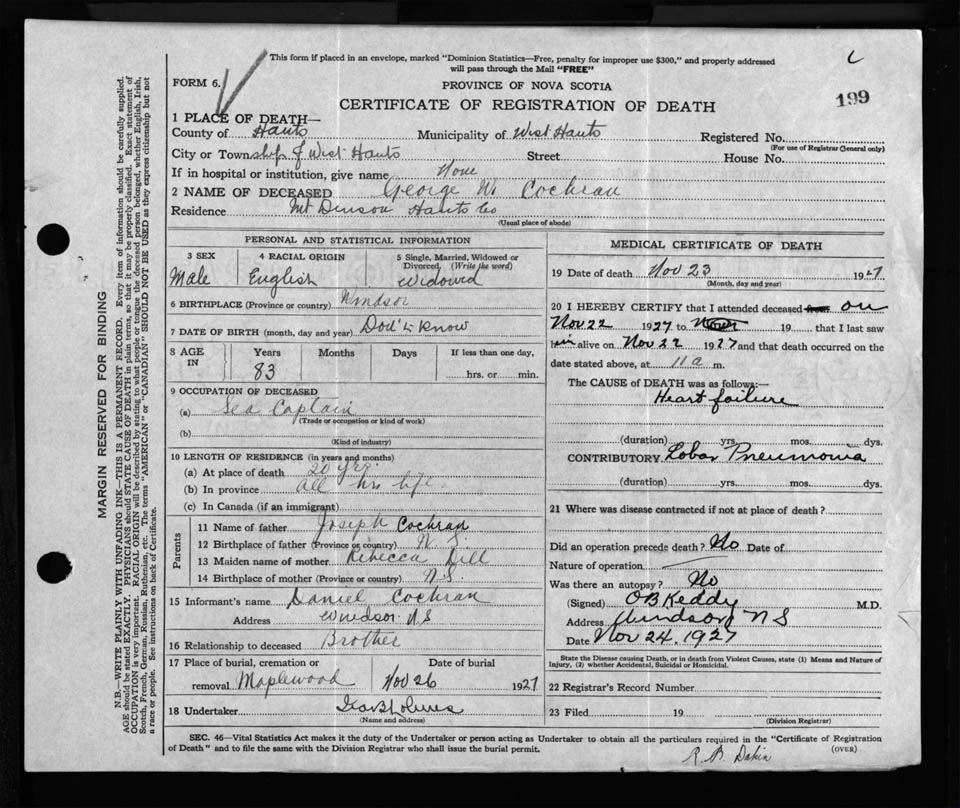 This form if placed in an envelope, marked "Dominion Statistics—Free, penalty for improper use $300," and properly addressed
will pass through the Mail "FREE"
FORM 6.
PROVINCE OF NOVA SCOTIA
CERTIFICATE OF REGISTRATION OF DEATH
199
1 PLACE OF DEATH—
County of Hants Municipality of West Hants Registered No.
(For use of Registrar General only)
City or Township of West Hants Street House No.
If in hospital or institution, give name None
2 NAME OF DECEASED George W. Cochran
Residence Mt Denson Hants Co
(Usual place of abode)
PERSONAL AND STATISTICAL INFORMATION
3 SEX 4 RACIAL ORIGIN 5 Single, Married, Widowed or Divorced, (Write the word)
Male English Widowed
6 BIRTHPLACE (Province or country) Windsor
7 DATE OF BIRTH (month, day and year) Don't Know
8 AGE IN Years Months Days If less than one day,
83 hrs. or min.
9 OCCUPATION OF DECEASED
(a) Sea Captain
(Trade or occupation or kind of work)
(b)
(Kind of industry)
10 LENGTH OF RESIDENCE (in years and months)
(a) At place of death 20 yrs.
(b) In province all his life.
(c) In Canada (if an immigrant)
Parents
11 Name of father Joseph Cochran
12 Birthplace of father (Province or country) N.S.
13 Maiden name of mother Rebecca Dill
14 Birthplace of mother (Province or country) N.S.
15 Informant's name Daniel Cochran
Address Windsor N.S
16 Relationship to deceased Brother
17 Place of burial, cremation or Date of burial
removal Maplewood Nov 26 1927
18 Undertaker
(Name and address)
MEDICAL CERTIFICATE OF DEATH
19 Date of death Nov 23 1927
(Month, day and year)
20 I HEREBY CERTIFY that I attended deceased from on
Nov 22 1927 to 19 that I last saw
him alive on Nov 22 1927 and that death occurred on the
date stated above, at 11 a m.
The CAUSE of DEATH was as follows:—
Heart failure
(duration) yrs. mos. dys.
CONTRIBUTORY Lobar Pneumonia
(duration) yrs. mos. dys.
21 Where was disease contracted if not at place of death?
Did an operation precede death? No Date of
Nature of operation
Was there an autopsy? No
(Signed) O B Keddy M.D.
Address Windsor N S
Date Nov 24, 1927
State the Disease causing Death, or in death from Violent Causes, state (1) Means and Nature of
Injury, (2) whether Accidental, Suicidal or Homicidal.
22 Registrar's Record Number
23 Filed 19
(Division Registrar)
SEC. 46—Vital Statistics Act makes it the duty of the Undertaker or person acting as Undertaker to obtain all the particulars required in the "Certificate of Registration
of Death" and to file the same with the Division Registrar who shall issue the burial permit.
(OVER)
R. B. Dakin
MARGIN RESERVED FOR BINDING
N.B.—WRITE PLAINLY WITH UNFADING INK—THIS IS A PERMANENT RECORD. Every item of information should be carefully supplied.
AGE should be stated EXACTLY. PHYSICIANS should STATE CAUSE OF DEATH in plain terms, so that it may be properly classified. Exact statement of
OCCUPATION is very important. RACIAL ORIGIN will be described by stating to what people or tongue the deceased person belonged, whether English, Irish,
Scotch, French, German, Russian, Ruthenian, etc. The terms "AMERICAN" or "CANADIAN" SHOULD NOT BE USED as they express citizenship but not
a race or people. See instructions on back of Certificate.